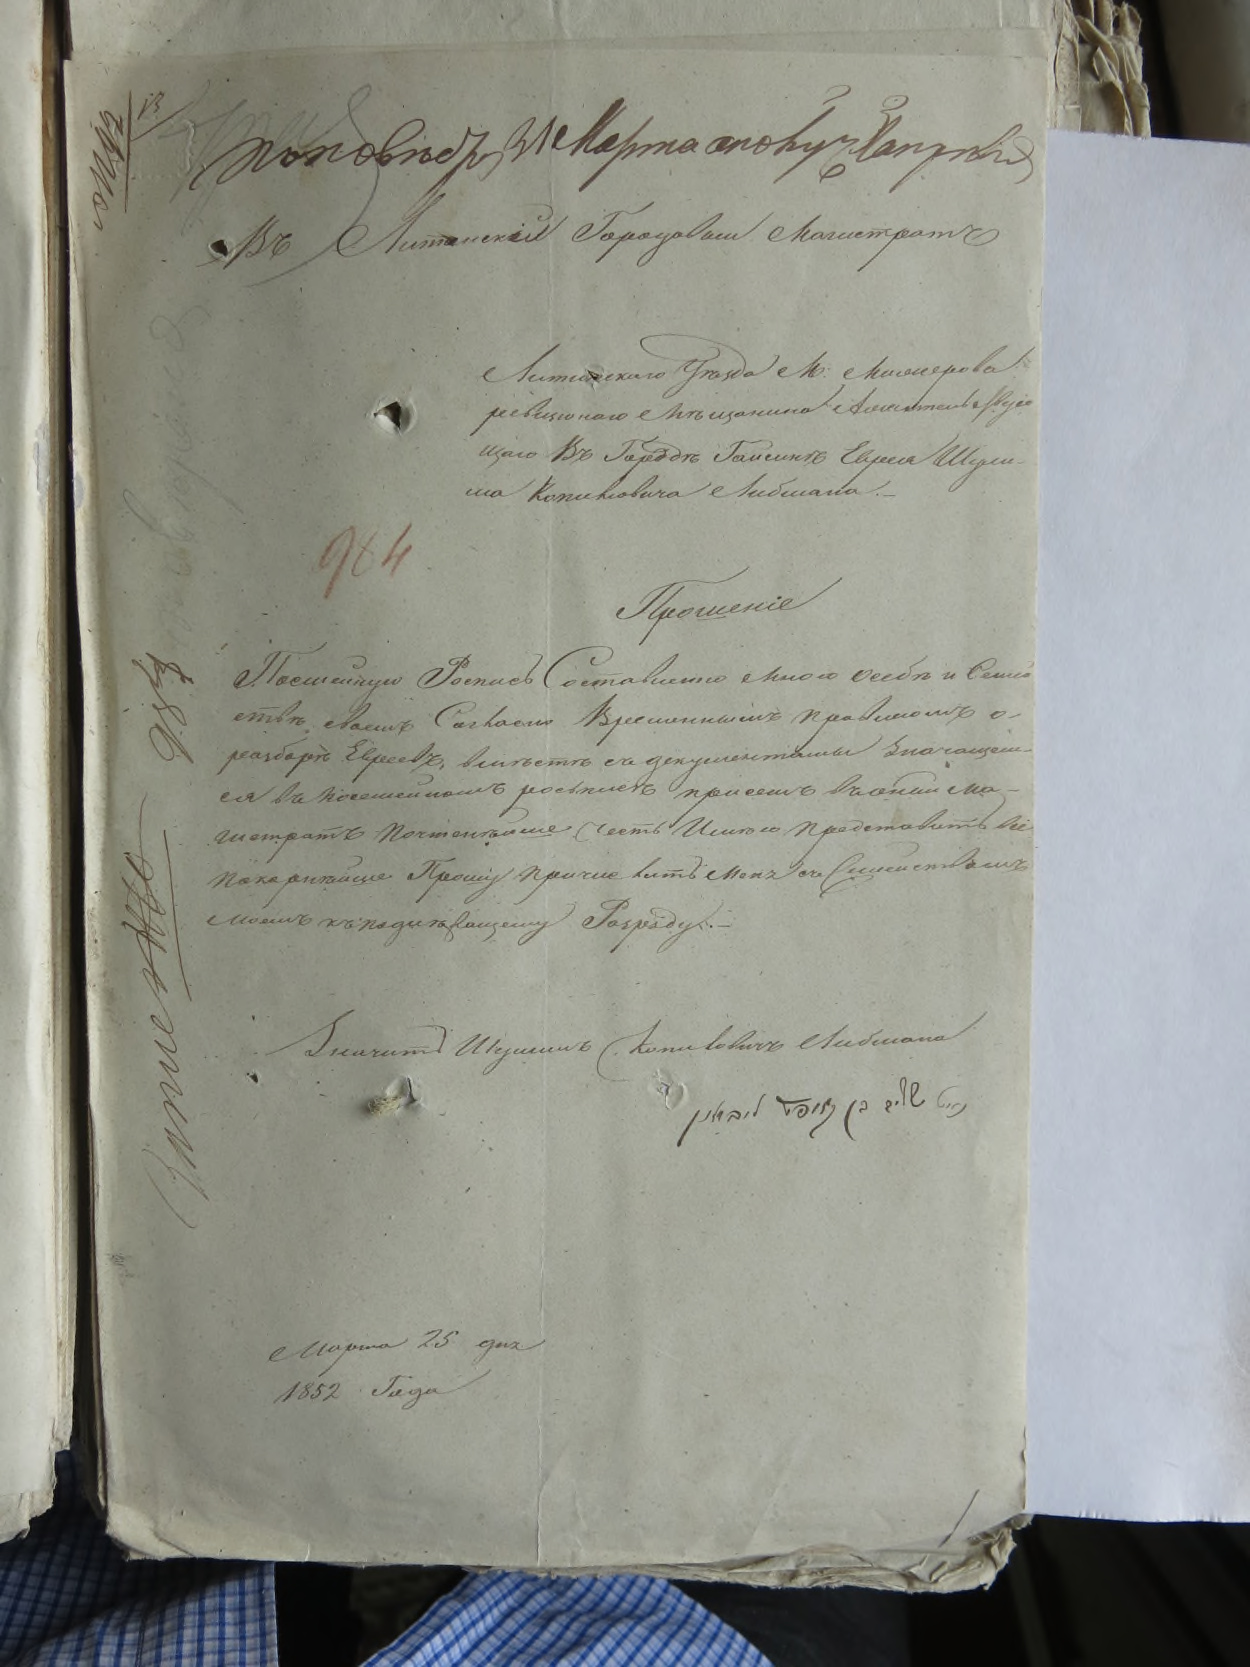 31 Марта
Въ Литинскій Городовой Магистратъ
Литинскаго Уезда М:
ревизскаго Мѣщанина Жительствую
щаго Въ Городѣ Гайсинѣ Еврея Шули-
ма Копиловича Либмана.-
984
Прошеніе
Посемейную Роспись Составленно Мною о себѣ и Семей
ствѣ своемъ Согласно Временнымъ правиламъ о-
разборѣ Евреевъ, вмѣстѣ съ документами Значащеми-
ся въ посемейномъ росписѣ при семъ въ оний Ма-
гистратъ почтенѣйше Честь Имѣю представить
покорнѣйше Прошу причислить Меня съ Семействомъ
моемъ къ подлежащему Разряду.-
Значитъ Шулимъ Копиловичъ Либмана
בן ליבמאן
Марта 25 дня
1852 Года